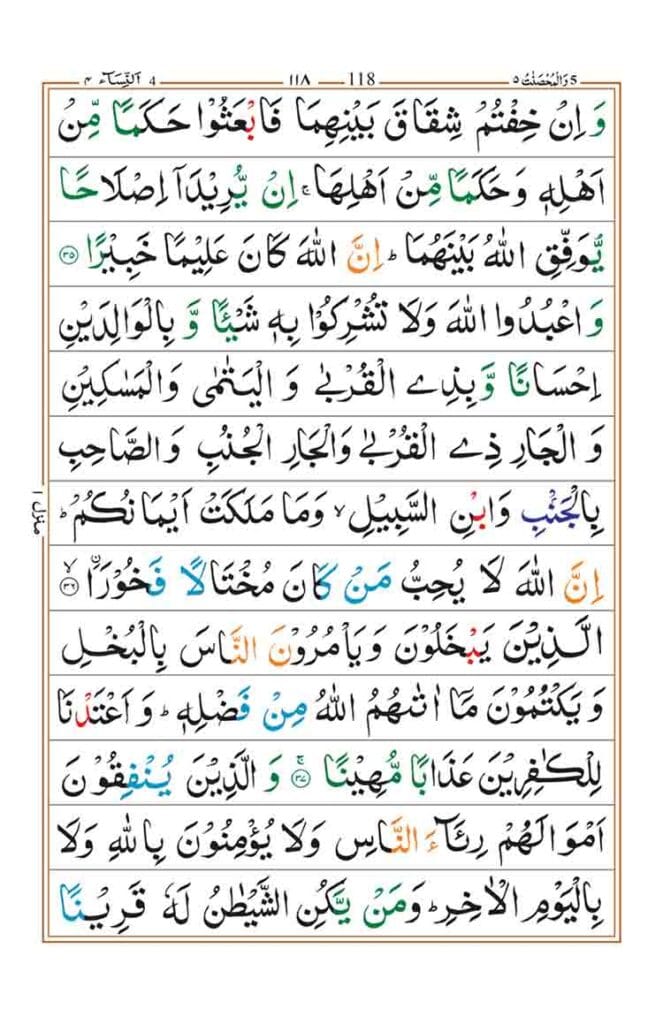 4 اَلنِّسَآء ۴ ١١٨ 118 5 وَالْمُحْصَنٰتُ ۵
وَ اِنْ خِفْتُمْ شِقَاقَ بَيْنِهِمَا فَابْعَثُوْا حَكَمًا مِّنْ
اَهْلِهٖ وَ حَكَمًا مِّنْ اَهْلِهَا ۚ اِنْ يُّرِيْدَاۤ اِصْلَاحًا
يُّوَفِّقِ اللّٰهُ بَيْنَهُمَا ؕ اِنَّ اللّٰهَ كَانَ عَلِيْمًا خَبِيْرًا ۳۵
وَ اعْبُدُوا اللّٰهَ وَلَا تُشْرِكُوْا بِهٖ شَيْـًٔا وَّ بِالْوَالِدَيْنِ
اِحْسَانًا وَّ بِذِي الْقُرْبٰى وَ الْيَتٰمٰى وَالْمَسٰكِيْنِ
وَ الْجَارِ ذِي الْقُرْبٰى وَالْجَارِ الْجُنُبِ وَالصَّاحِبِ
بِالْجَنْۢبِ وَابْنِ السَّبِيْلِ ۙ وَمَا مَلَكَتْ اَيْمَانُكُمْ ؕ
اِنَّ اللّٰهَ لَا يُحِبُّ مَنْ كَانَ مُخْتَالًا فَخُوْرَا ۙ ۳۶
الَّذِيْنَ يَبْخَلُوْنَ وَيَاْمُرُوْنَ النَّاسَ بِالْبُخْلِ
وَ يَكْتُمُوْنَ مَاۤ اٰتٰىهُمُ اللّٰهُ مِنْ فَضْلِهٖ ؕ وَ اَعْتَدْنَا
لِلْكٰفِرِيْنَ عَذَابًا مُّهِيْنًا ۚ ۳۷ وَ الَّذِيْنَ يُنْفِقُوْنَ
اَمْوَالَهُمْ رِئَآءَ النَّاسِ وَلَا يُؤْمِنُوْنَ بِاللّٰهِ وَلَا
بِالْيَوْمِ الْاٰخِرِ ؕ وَمَنْ يَّكُنِ الشَّيْطٰنُ لَهٗ قَرِيْنًا
منزل ۱